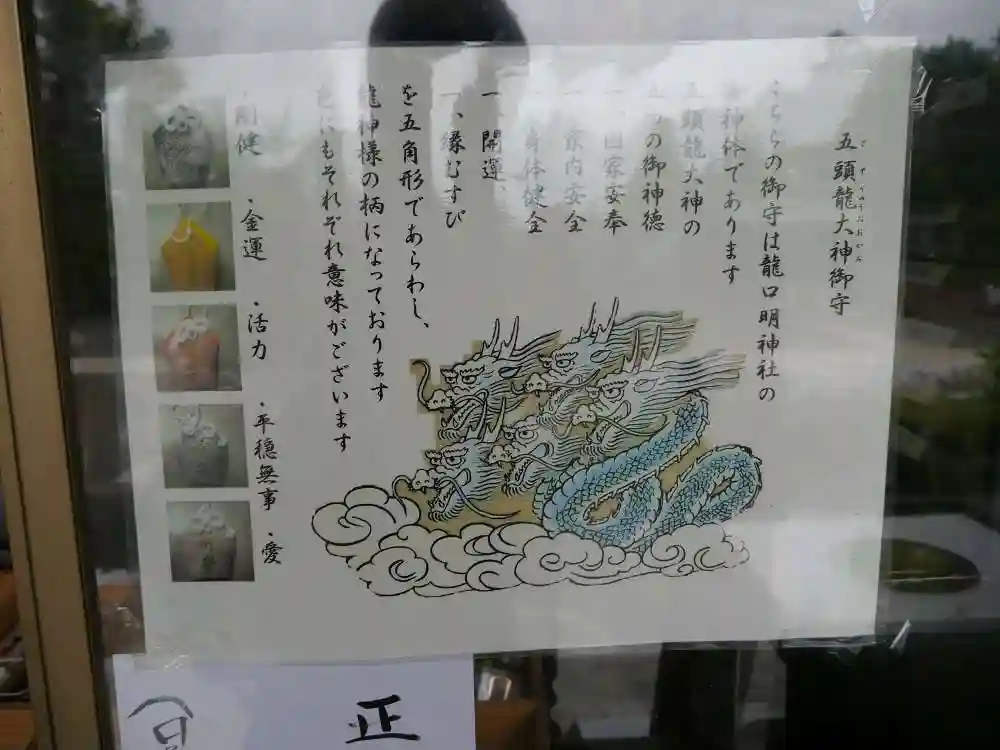 五頭龍大神御守
ごずりゅうおおかみ
こちらの御守は龍口明神社の
御神体であります
五頭龍大神の
五つの御神徳
一、国家安泰
一、家内安全
一、身体健全
一、開運、
一、縁むすび
を五角形であらわし、
龍神様の柄になっております
色にもそれぞれ意味がございます
・剛健
・金運
・活力
・平穏無事
・愛
正